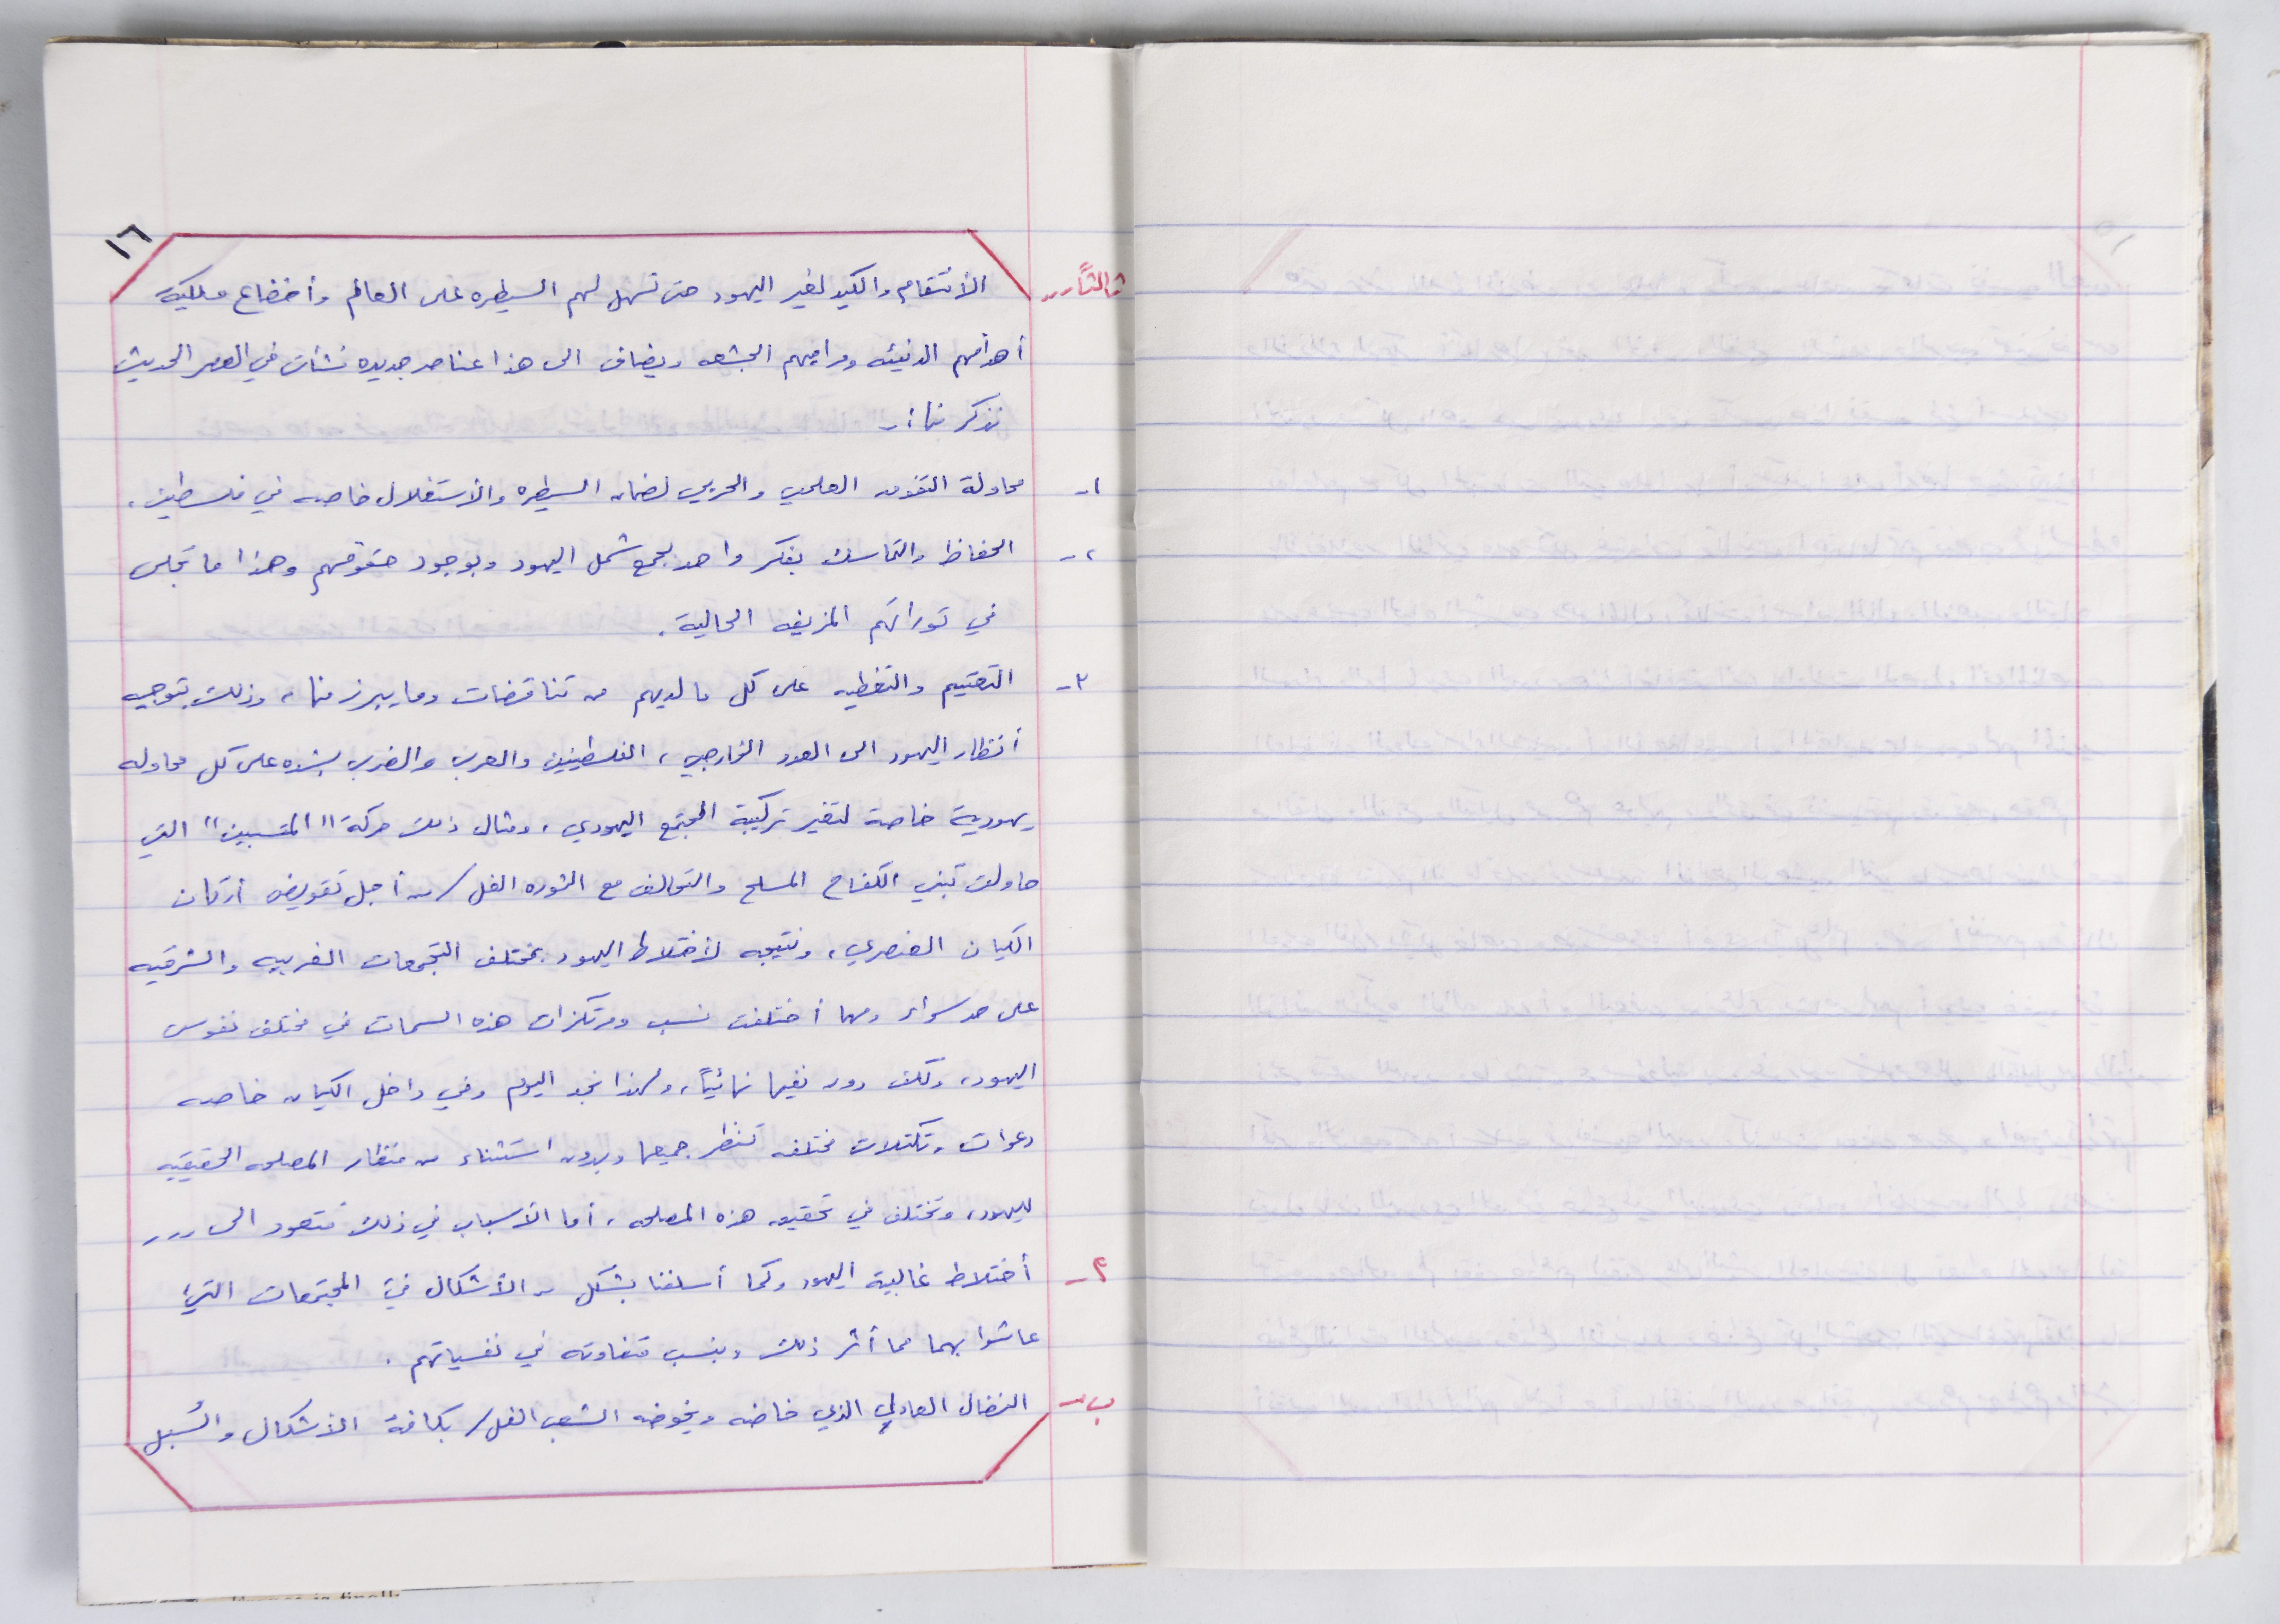 ١٦
ثالثاً.. الأنتقام والكيد لغير اليهود حتى تسهل لهم السيطره على العالم وأخضاع
أهدافهم الدنيئه ومراميهم الجشعه ويضاف الى هذا عناصر جديده نشأت في العصر الحديث
نذكر منها :ـ
١ـ محاولة التفوق العلمي والحربي لضمان السيطره والأستغلال خاصه في فلسطين .
٢ـ الحفاظ والتماسك بفكر واحد يجمع شمل اليهود وبوجود حقوقهم وهذا ما تجلى
في توراتهم المزيفه الحالية .
٣ـ التعتيم والتغطيه على كل ما لديهم من تناقضات وما يبرز منها ، وذلك بتوجيه
أنظار اليهود الى العدو الخارجي ، الفلسطينيين والعرب والضرب بشده على كل محاوله
يهودية خاصة لتغير تركيبة المجتمع اليهودي ، ومثال ذلك حركة " المتسبين " التي
حاولت تبني الكفاح المسلح والتحالف مع الثوره الفل/ من أجل تقويض أركان
الكيان العنصري ، ونتيجه لأختلاط اليهود بمختلف التجمعات الغربيه والشرقيه
على حد سواء ومهما أختلفت نسب ومرتكزات هذه السمات في مختلف نفوس
اليهود ، ولكن دون نفيها نهائياً ، ولهذا نجد اليوم وفي داخل الكيان خاصه
دعوات وتكتلات مختلفه تنظر جميعها وبدون استثناء من منظار المصلحه الحقيقيه
لليهود ، وتختلف في تحقيق هذه المصلحه ، أما الأسباب في ذلك فتعود الى ...
٤ـ أختلاط غالبية اليهود وكما أسلفنا بشكل من الأشكال في المجتمعات التي
عاشوا بهما مما أثر ذلك وبنسب متفاوته في نفسياتهم .
ب ـ النضال العادل الذي خاضه ويخوضه الشعب الفل/ بكافة الأشكال والسُبل